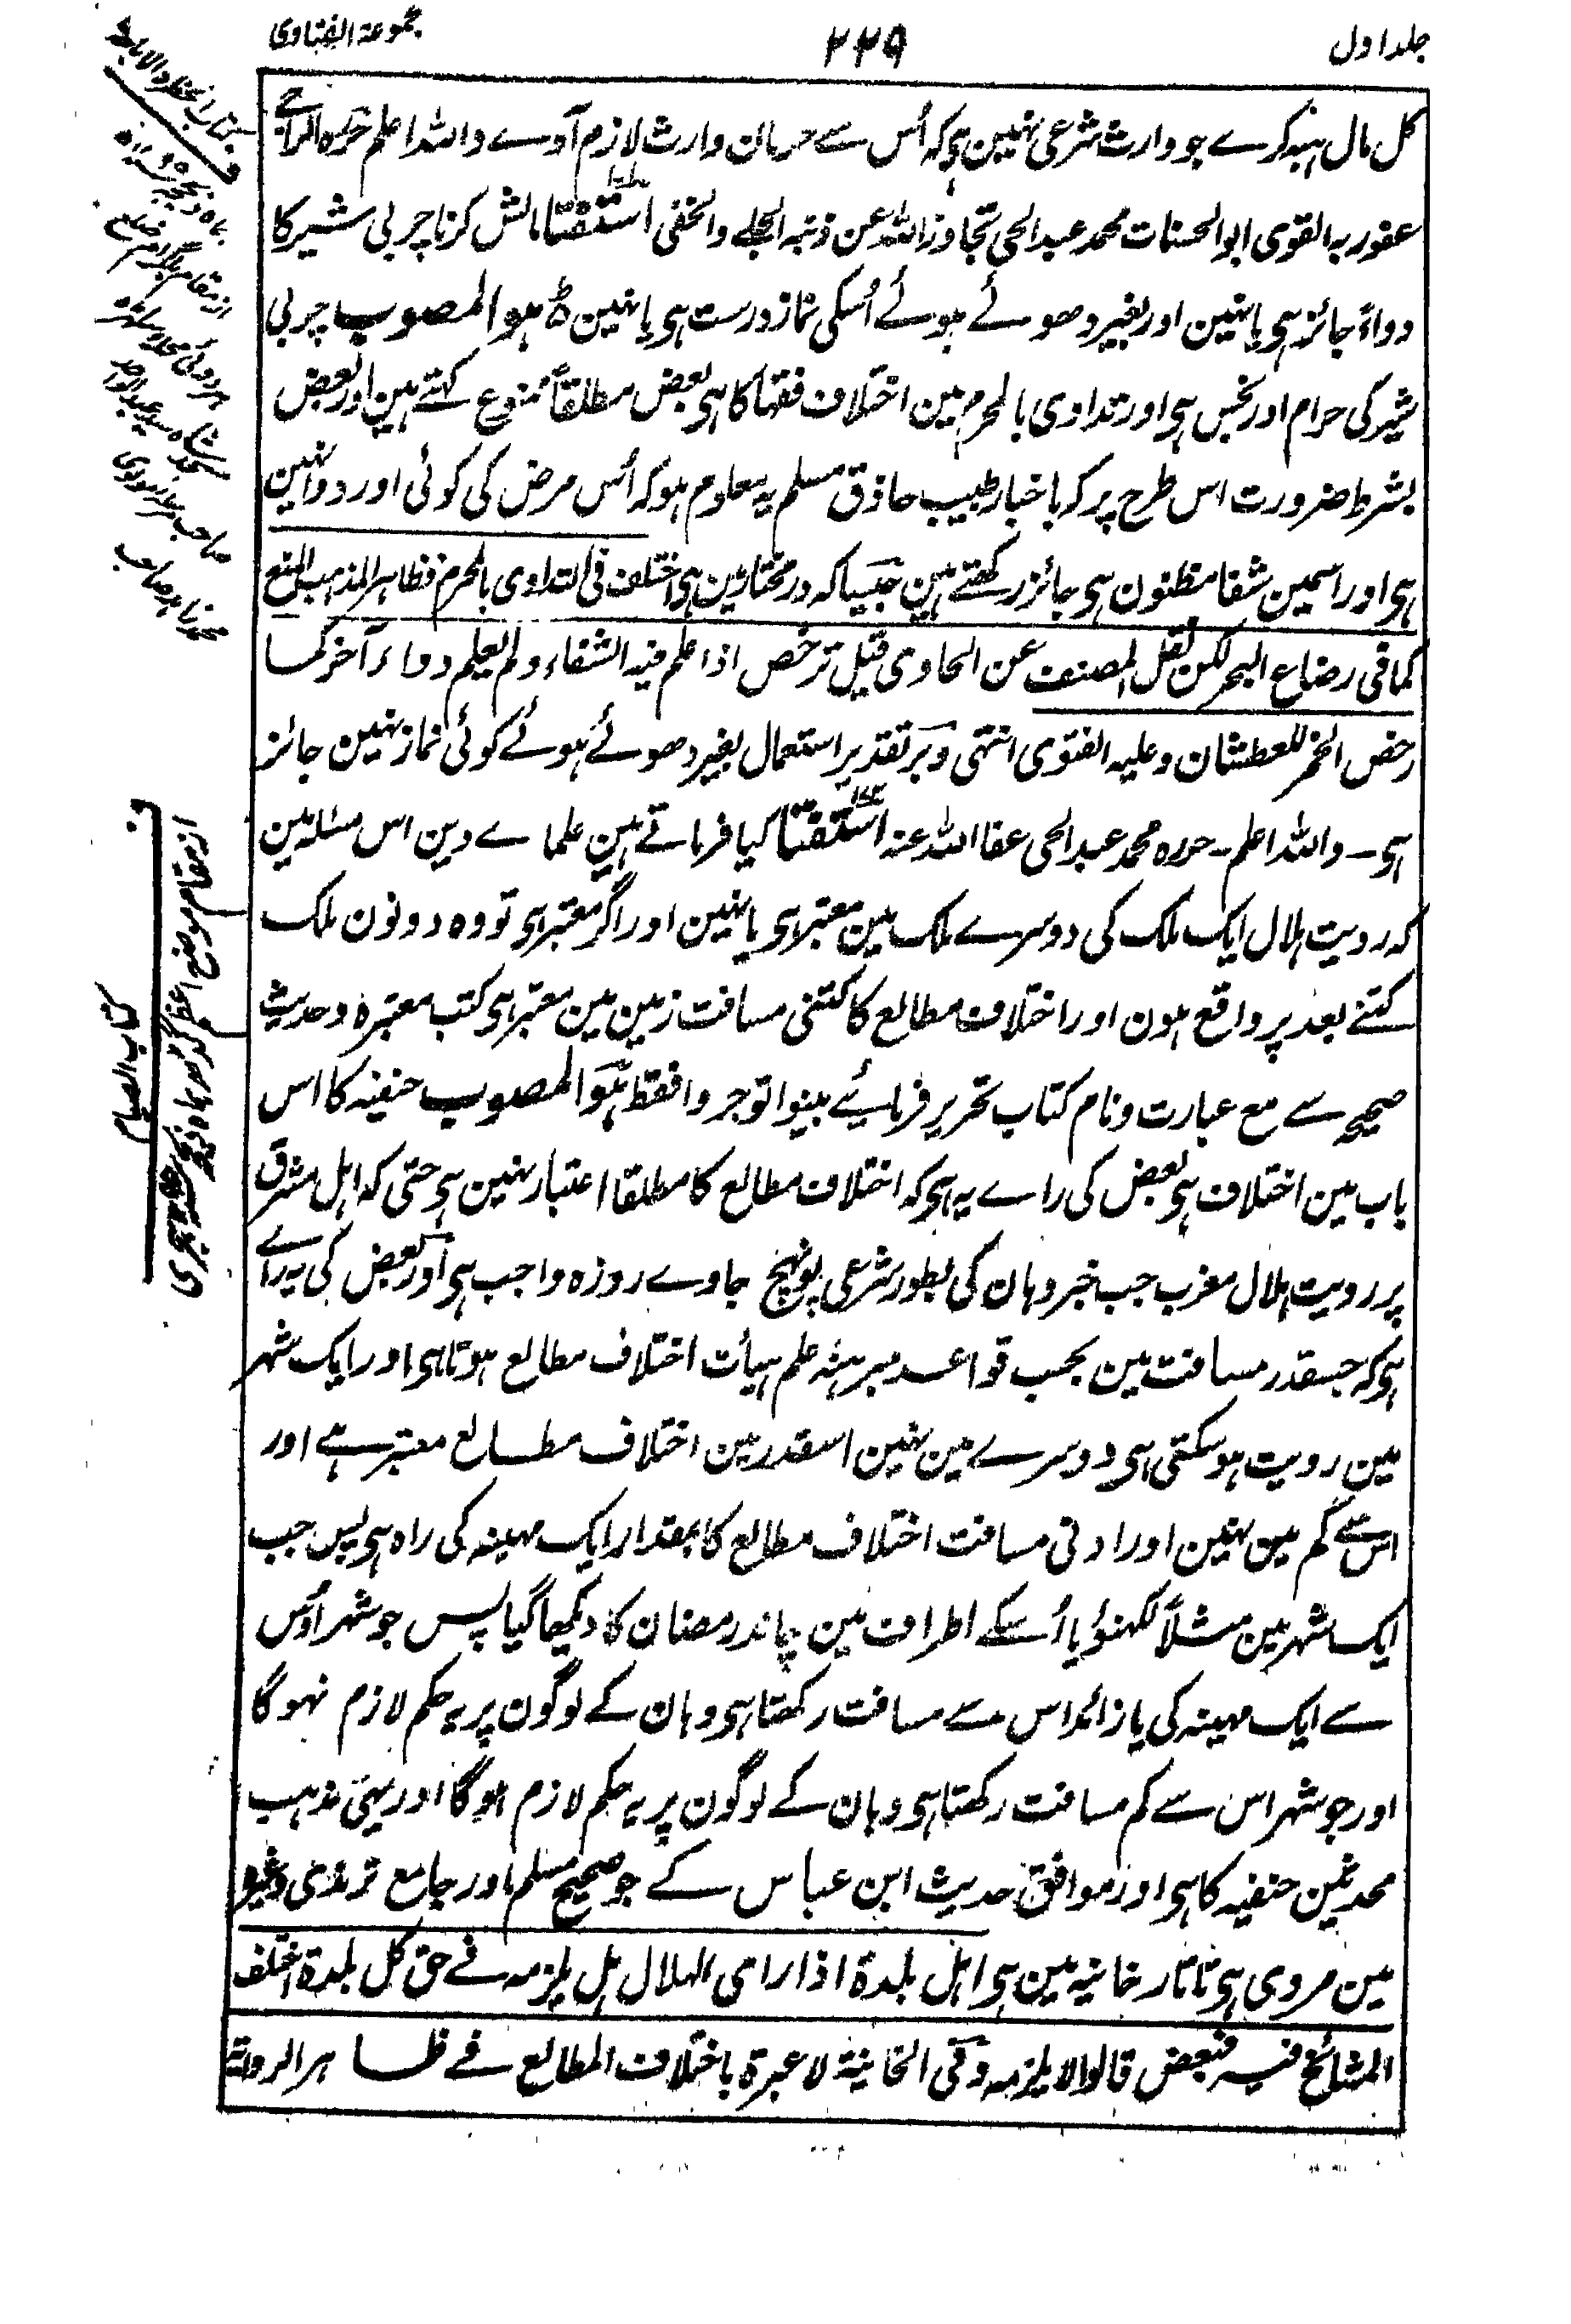 جلد اول
۲۲۹
مجموعۃ الفتاوی
کل مال ہبہ کرے جو وارث شرعی نہین ہی کہ اُس سے حرمان وارث لازم آوے واللہ اعلم حررہ الراجی
عفو ربہ القوی ابو الحسنات محمد عبد الحی تجاوز اللہ عن ذنبہ الجلے والخفی استفتا مالش کرنا چربی شیر کا
دواءً جائز ہی یا نہین اور بغیر دھوئے ہوئے اُسکی نماز درست ہی یا نہین ھو المصوب چربی
شیر کی حرام اور نجس ہی اور تداوی بالمحرم مین اختلاف فقہا کا ہی بعض مطلقاً ممنوع کہتے ہین اور بعض
بشرط ضرورت اس طرح پر کہ باخبار طبیب حاذق مسلم یہ معلوم ہو کہ اُس مرض کی کوئی اور دوا نہین
ہی اور اسمین شفا مظنون ہی جائز رکھتے ہین جیسا کہ در مختار مین ہی اختلف فی التداوی بالمحرم فظاہر المذہب المنع
کما فی رضاع البحر لکن نقل المصنف عن الحاوی قیل ترخص اذا علم فیہ الشفاء ولم یعلم دواء آخر کما
رخص الخمر للعطشان وعلیہ الفتوی انتہی وبر تقدیر استعمال بغیر دھوئے ہوئے کوئی نماز نہین جائز
ہی ۔ واللہ اعلم ۔ حررہ محمد عبد الحی عفا اللہ عنہ استفتا کیا فرماتے ہین علماے دین اس مسئلہ مین
کہ رویت ہلال ایک ملک کی دوسرے ملک مین معتبر ہی یا نہین اور اگر معتبر ہی تو وہ دونون ملک
کتنے بعد پر واقع ہون اور اختلاف مطالع کا کتنی مسافت زمین مین معتبر ہی کتب معتبرہ وحدیث
صحیح سے مع عبارت ونام کتاب تحریر فرمائیے بینوا توجروا فقط ھو المصوب حنفیہ کا اس
باب مین اختلاف ہی بعض کی راے یہ ہی کہ اختلاف مطالع کا مطلقا اعتبار نہین ہی حتی کہ اہل مشرق
پر رویت ہلال مغرب جب خبر وہان کی بطور شرعی پہونچ جاوے روزہ واجب ہی اور بعض کی یہ راے
ہی کہ جسقدر مسافت مین بحسب قواعد مبرہنہ علم ہیأت اختلاف مطالع ہوتا ہی اور ایک شہر
مین رویت ہوسکتی ہی دوسرے مین نہین اسقدر مین اختلاف مطالع معتبر ہے اور
اس سے کم مین نہین اور ادنی مسافت اختلاف مطالع کا بمقدار ایک مہینہ کی راہ ہی پس جب
ایک شہر مین مثلاً لکھنؤ یا اُسکے اطراف مین چاند رمضان کا دیکھا گیا پس جو شہر اُس
سے ایک مہینہ کی یا زائد اس سے مسافت رکھتا ہی وہان کے لوگون پر یہ حکم لازم نہوگا
اور جو شہر اس سے کم مسافت رکھتا ہی وہان کے لوگون پر یہ حکم لازم ہوگا اور یہی مذہب
محدثین حنفیہ کا ہی اور موافق حدیث ابن عباس کے جو صحیح مسلم اور جامع ترمذی وغیرہ
مین مروی ہی تاتار خانیہ مین ہی اہل بلدۃ اذا رای الہلال ہل یلزمہ فے حق کل بلدۃ اختلف
المشائخ فیہ فبعض قالوا لا یلزمہ وفی الخانیۃ لا عبرۃ باختلاف المطالع فے ظاہر الروایۃ
کتاب الحظر والاباحۃ
از مقام بلگرام ضلع
ہردوئی محلہ
صاحب
محمد زاہد صاحب
از مقام موضع اعظم گڈھ
کتاب الصیام